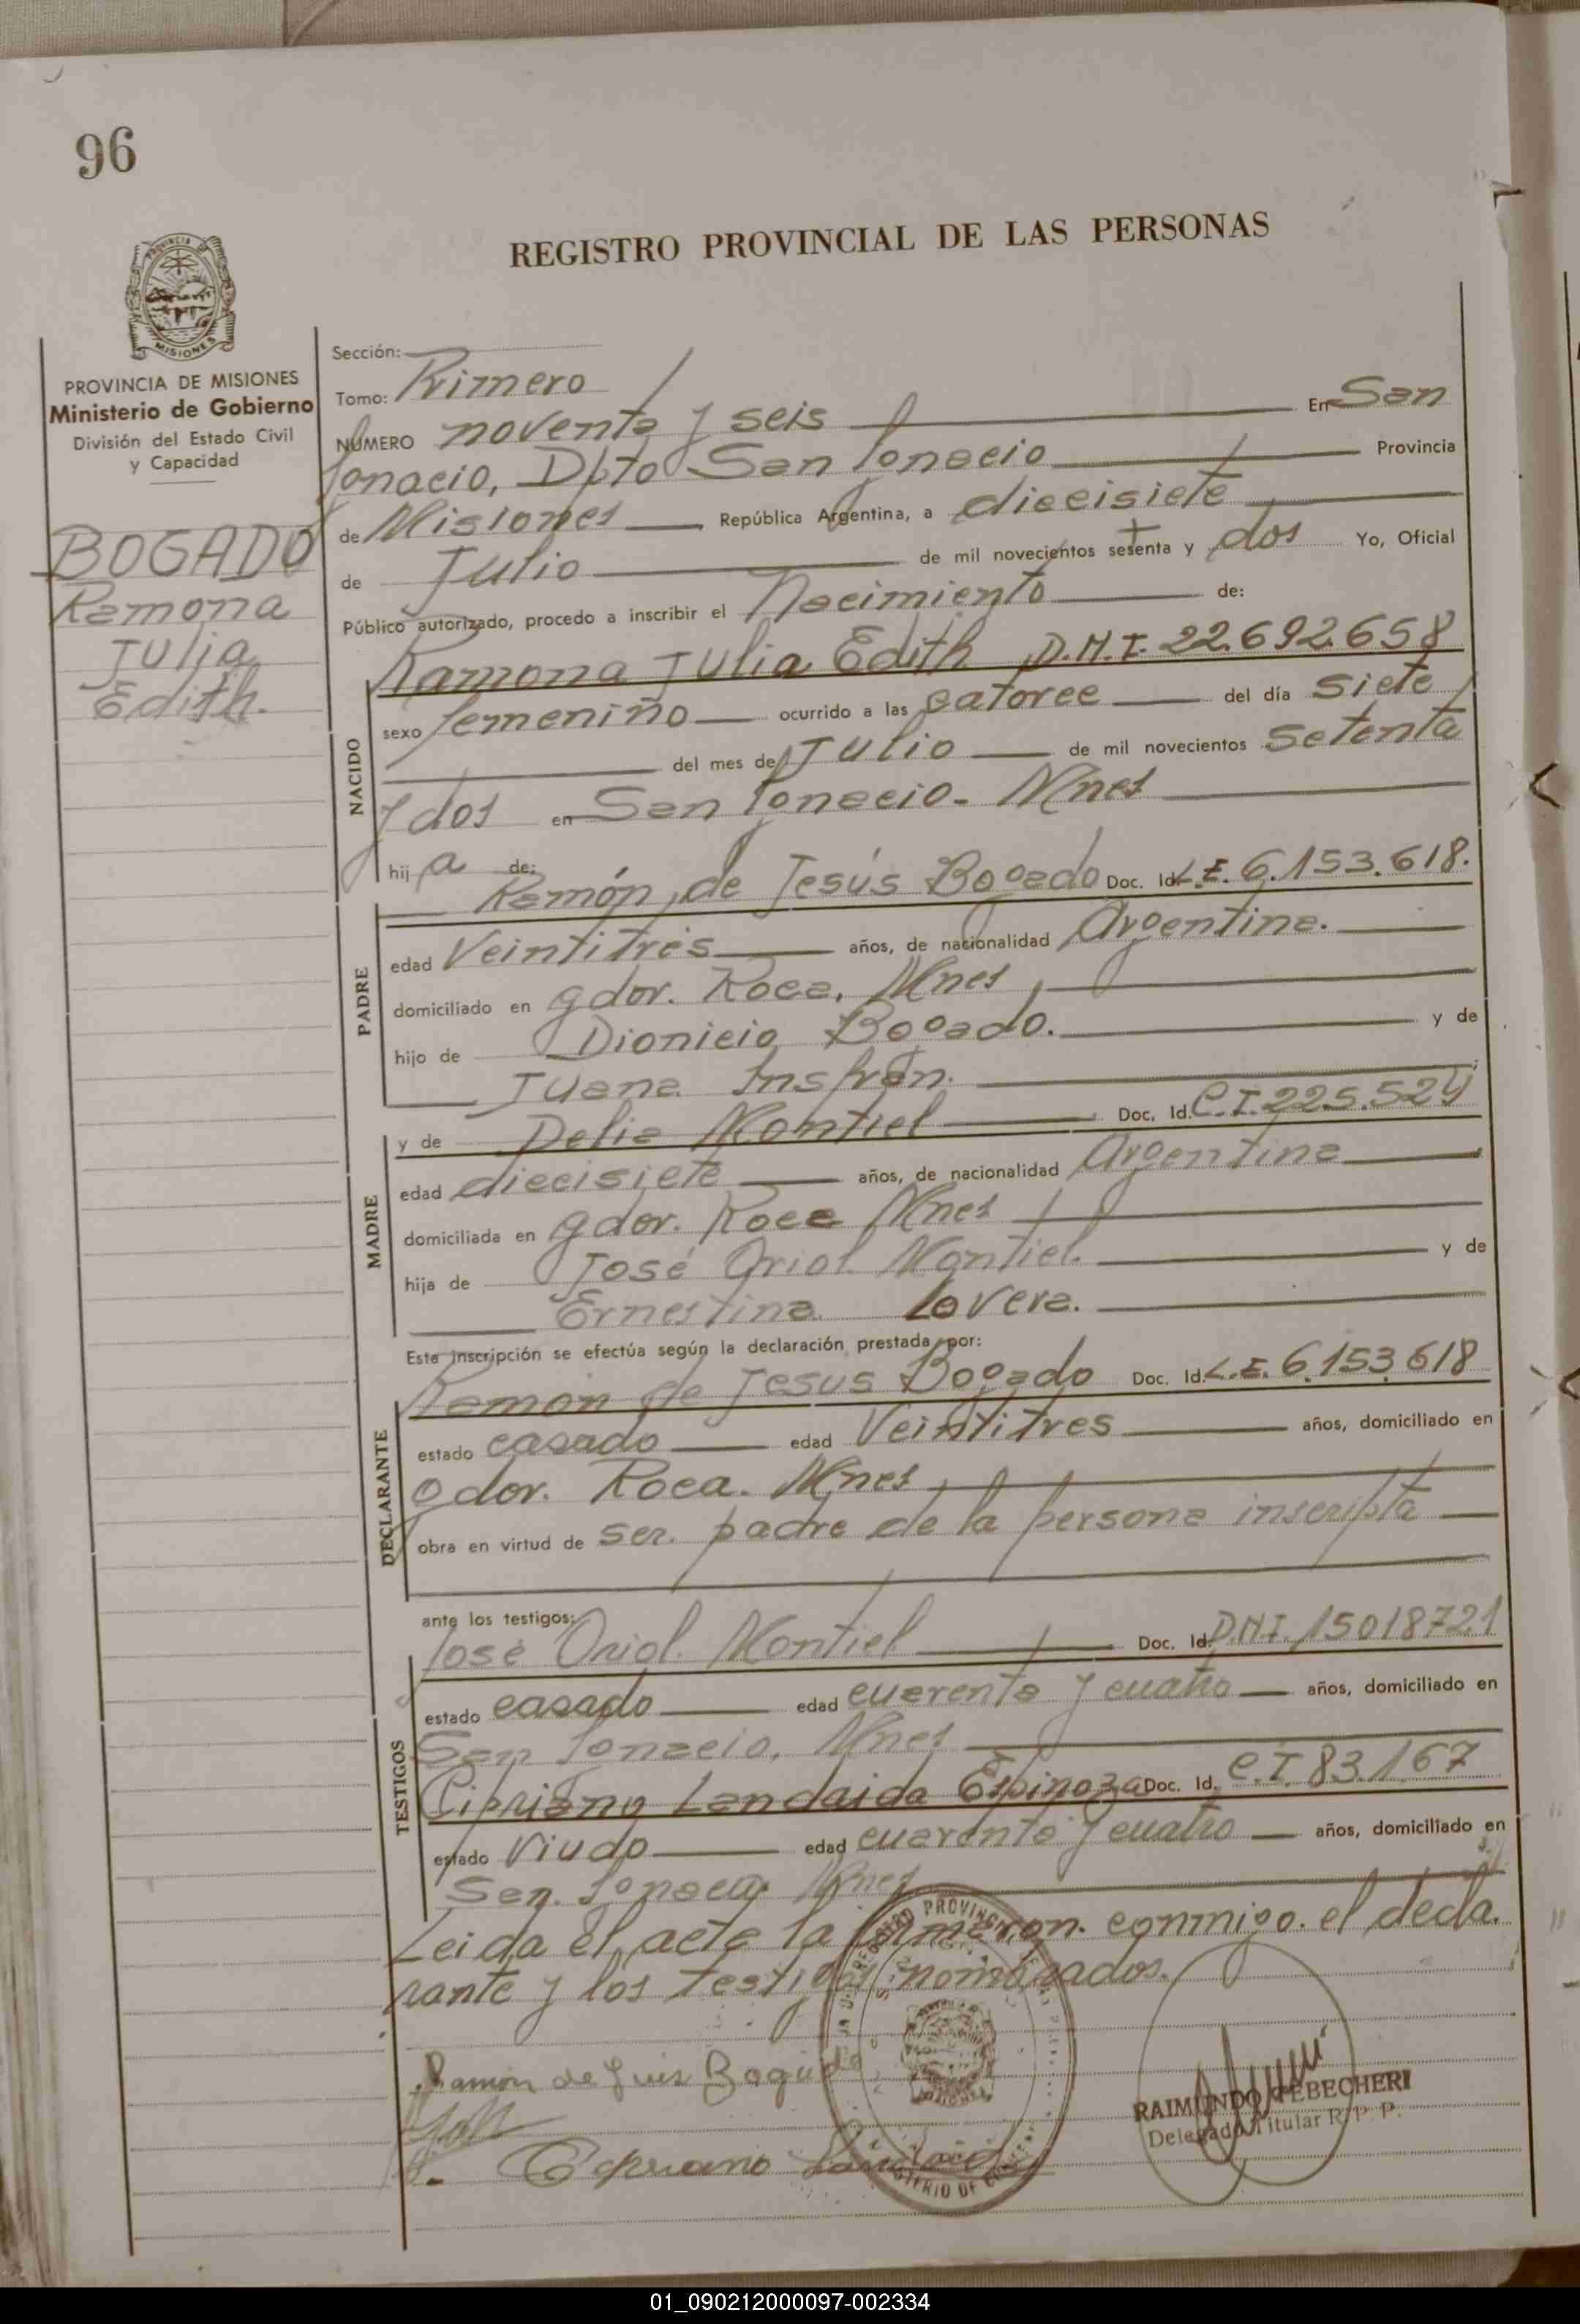 96
REGISTRO PROVINCIAL DE LAS PERSONAS
PROVINCIA DE
MISIONES
PROVINCIA DE MISIONES
Ministerio de Gobierno
División del Estado Civil
y Capacidad
BOGADO
Ramona
Julia
Edith.
Sección:
Tomo: Primero
NÚMERO noventa y seis En San
Ignacio, Dpto San Ignacio Provincia
de Misiones República Argentina, a diecisiete
de Julio de mil novecientos setenta y dos Yo, Oficial
Público autorizado, procedo a inscribir el Nacimiento de:
Ramona Julia Edith D.N.I. 22.692.658
NACIDO
sexo femenino ocurrido a las catorce del día siete
del mes de Julio de mil novecientos setenta
y dos en San Ignacio - Mnes
hija de:
Ramón de Jesús Bogado Doc. Id. L.E. 6.153.618.
PADRE
edad Veintitrés años, de nacionalidad Argentina.
domiciliado en gdor. Roca, Mnes
hijo de Dionicio Bogado. y de
Juana Insfrán.
MADRE
y de Delia Montiel Doc. Id. C.I. 225.524
edad diecisiete años, de nacionalidad Argentina
domiciliada en gdor. Roca Mnes
hija de José Oriol Montiel. y de
Ernestina Lovera.
Esta inscripción se efectúa según la declaración prestada por:
Ramón de Jesús Bogado Doc. Id. L.E. 6.153.618
DECLARANTE
estado casado edad Veintitres años, domiciliado en
gdor. Roca. Mnes
obra en virtud de ser. padre de la persona inscripta
ante los testigos:
José Oriol. Montiel Doc. Id. D.N.I. 15018721
TESTIGOS
estado casado edad cuarenta y cuatro años, domiciliado en
San Ignacio, Mnes
Cipriano Landaida Espinoza Doc. Id. C.I. 83.167
estado Viudo edad cuarenta y cuatro años, domiciliado en
San. Ignacio Mnes
Leida el acta la firmaron. conmigo. el decla.
rante y los testigos nombrados.
Ramón de Jesus Bogado
Cipriano
RAIMUNDO TEBECHERI
Delegado Titular R. P. P.
01_090212000097-002334